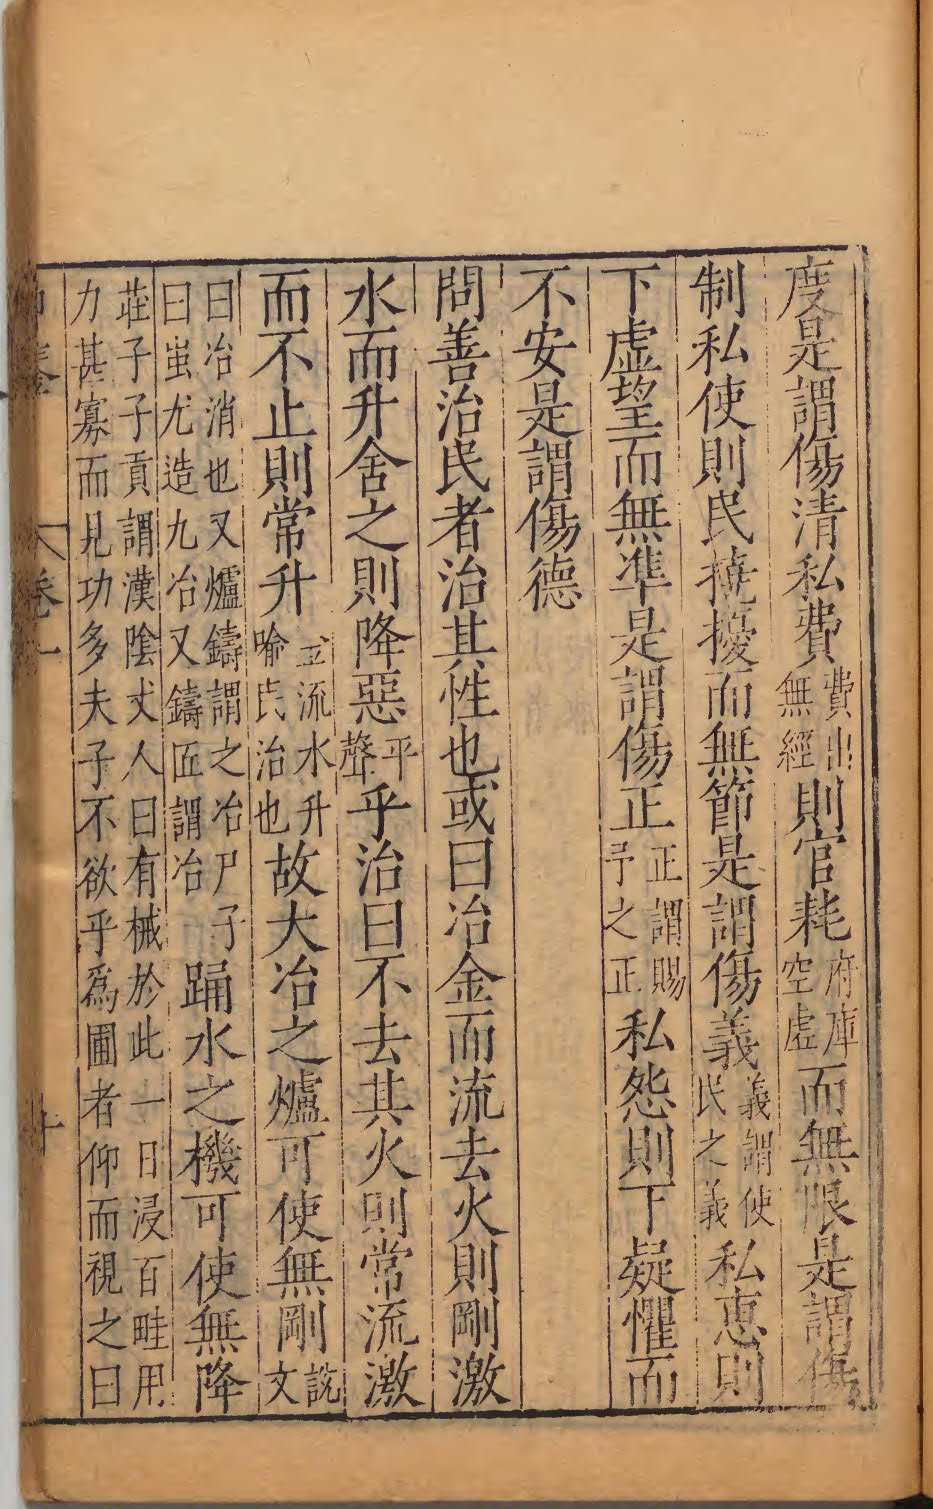 度是謂傷清私費費出無經則官耗府庫空虛而無限是謂傷
制私使則民撓擾而無節是謂傷義義謂使民之義私惠則
下虛望而無準是謂傷正正謂賜予之正私怨則下疑懼而
不安是謂傷德
問善治民者治其性也或曰冶金而流去火則剛激
水而升舍之則降惡平聲乎治曰不去其火則常流激
而不止則常升並流水升喻民治也故大冶之爐可使無剛說文
曰冶消也又爐鑄謂之冶尸子曰蚩尤造九冶又鑄匠謂冶踊水之機可使無降
莊子子貢謂漢陰丈人曰有械於此一日浸百畦用力甚寡而見功多夫子不欲乎爲圃者仰而視之曰
卷一
十